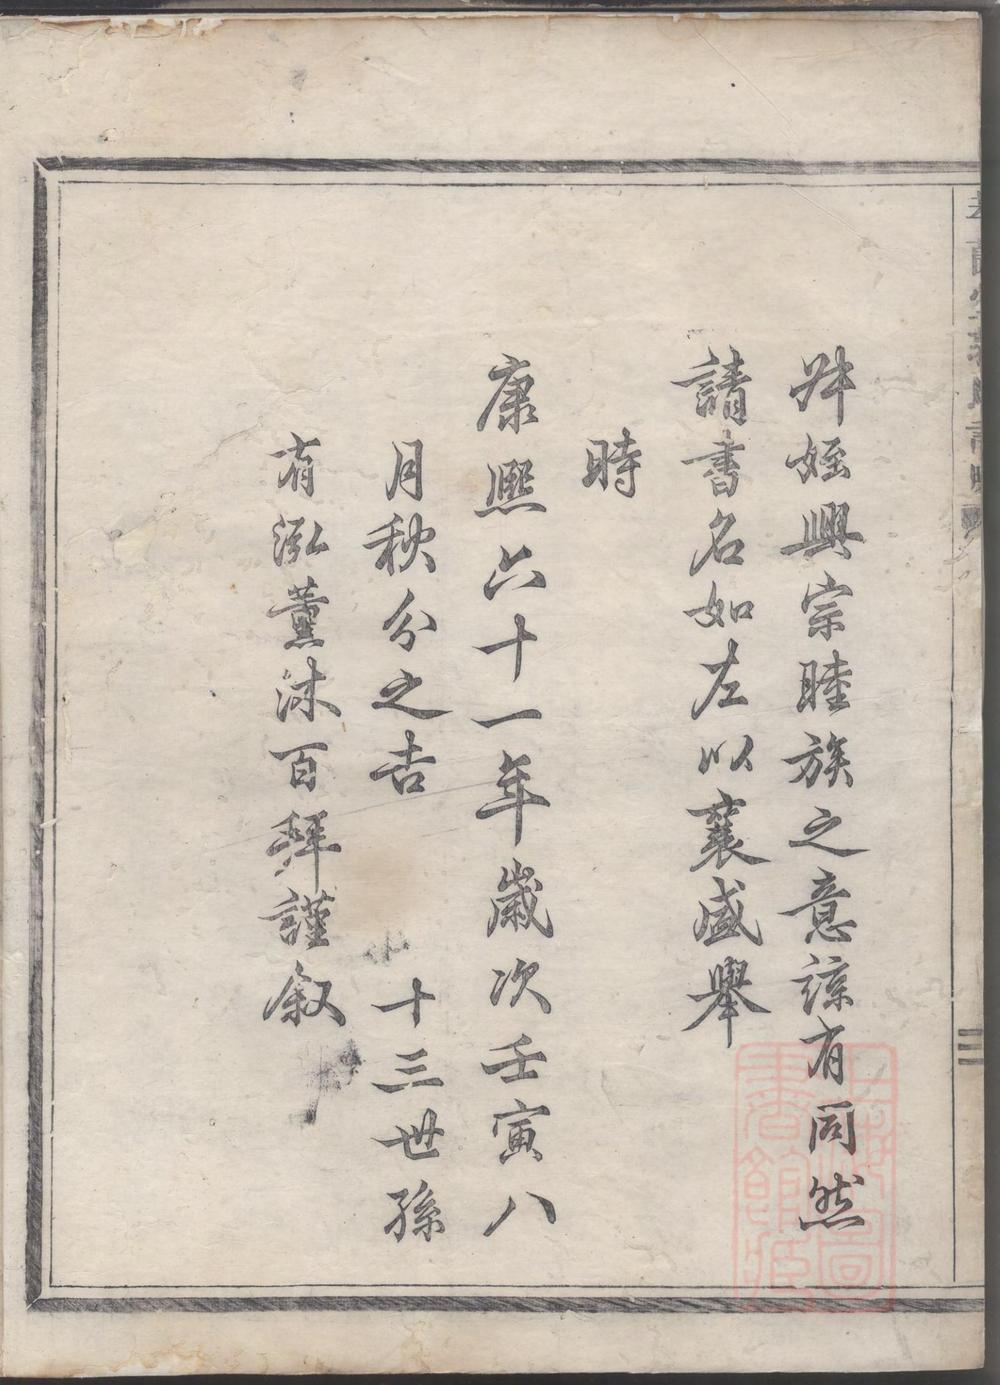 姪興宗睦族之意諒有同然
請書名如左以襄盛舉
時
康熙六十一年歲次壬寅八
月秋分之吉 十三世孫
有泓薰沐百拜謹叙